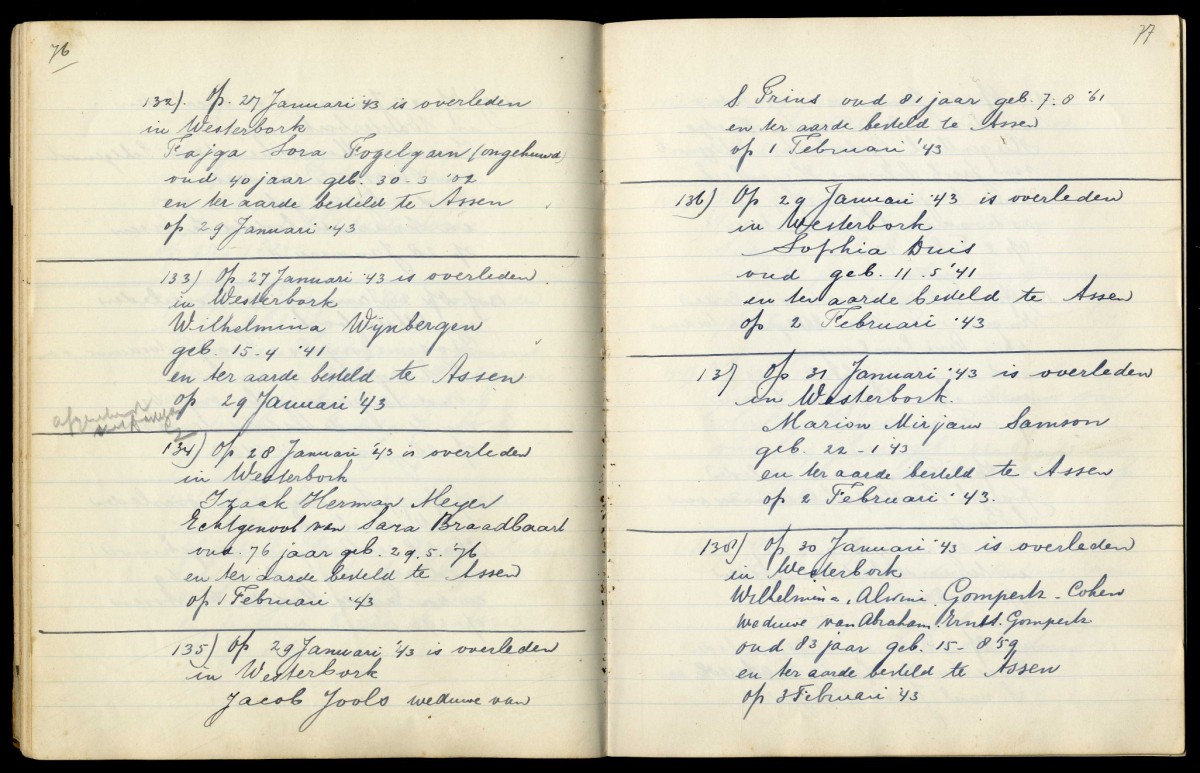 76
132). Op. 27 Januari '43 is overleden
in Westerbork
Fajga Sora Fogelgarn (ongehuwd)
oud 40 jaar geb. 30. 3 '02
en ter aarde besteld te Assen
op 29 Januari '43
133) Op 27 Januari '43 is overleden
in Westerbork
Wilhelmina Wijnbergen
geb. 15-4 '41
en ter aarde besteld te Assen
op 29 Januari '43
134) Op 28 Januari '43 is overleden
in Westerbork
Izaak Herman Meyer
Echtgenoot van Sara Braadbaart
oud 76 jaar geb. 29. 5. '76
en ter aarde besteld te Assen
op 1 Februari '43
135) Op 29 Januari '43 is overleden
in Westerbork
Jacob Jools weduwe van
77
S Prins oud 81 jaar geb. 7. 8 '61
en ter aarde besteld te Assen
op 1 Februari '43
136) Op 29 Januari '43 is overleden
in Westerbork
Sophia Duis
oud geb. 11. 5 '41
en ter aarde besteld te Assen
op 2 Februari '43
137 Op 31 Januari '43 is overleden
in Westerbork.
Marion Mirjam Samson
geb. 22-1 '43
en ter aarde besteld te Assen
op 2 Februari '43.
138) Op 30 Januari '43 is overleden
in Westerbork
Wilhelmina, Alwini. Gompertz-Cohen
weduwe van Abraham. Ernst. Gompertz
oud 83 jaar geb. 15-8 '59
en ter aarde besteld te Assen
op 3 Februari '43